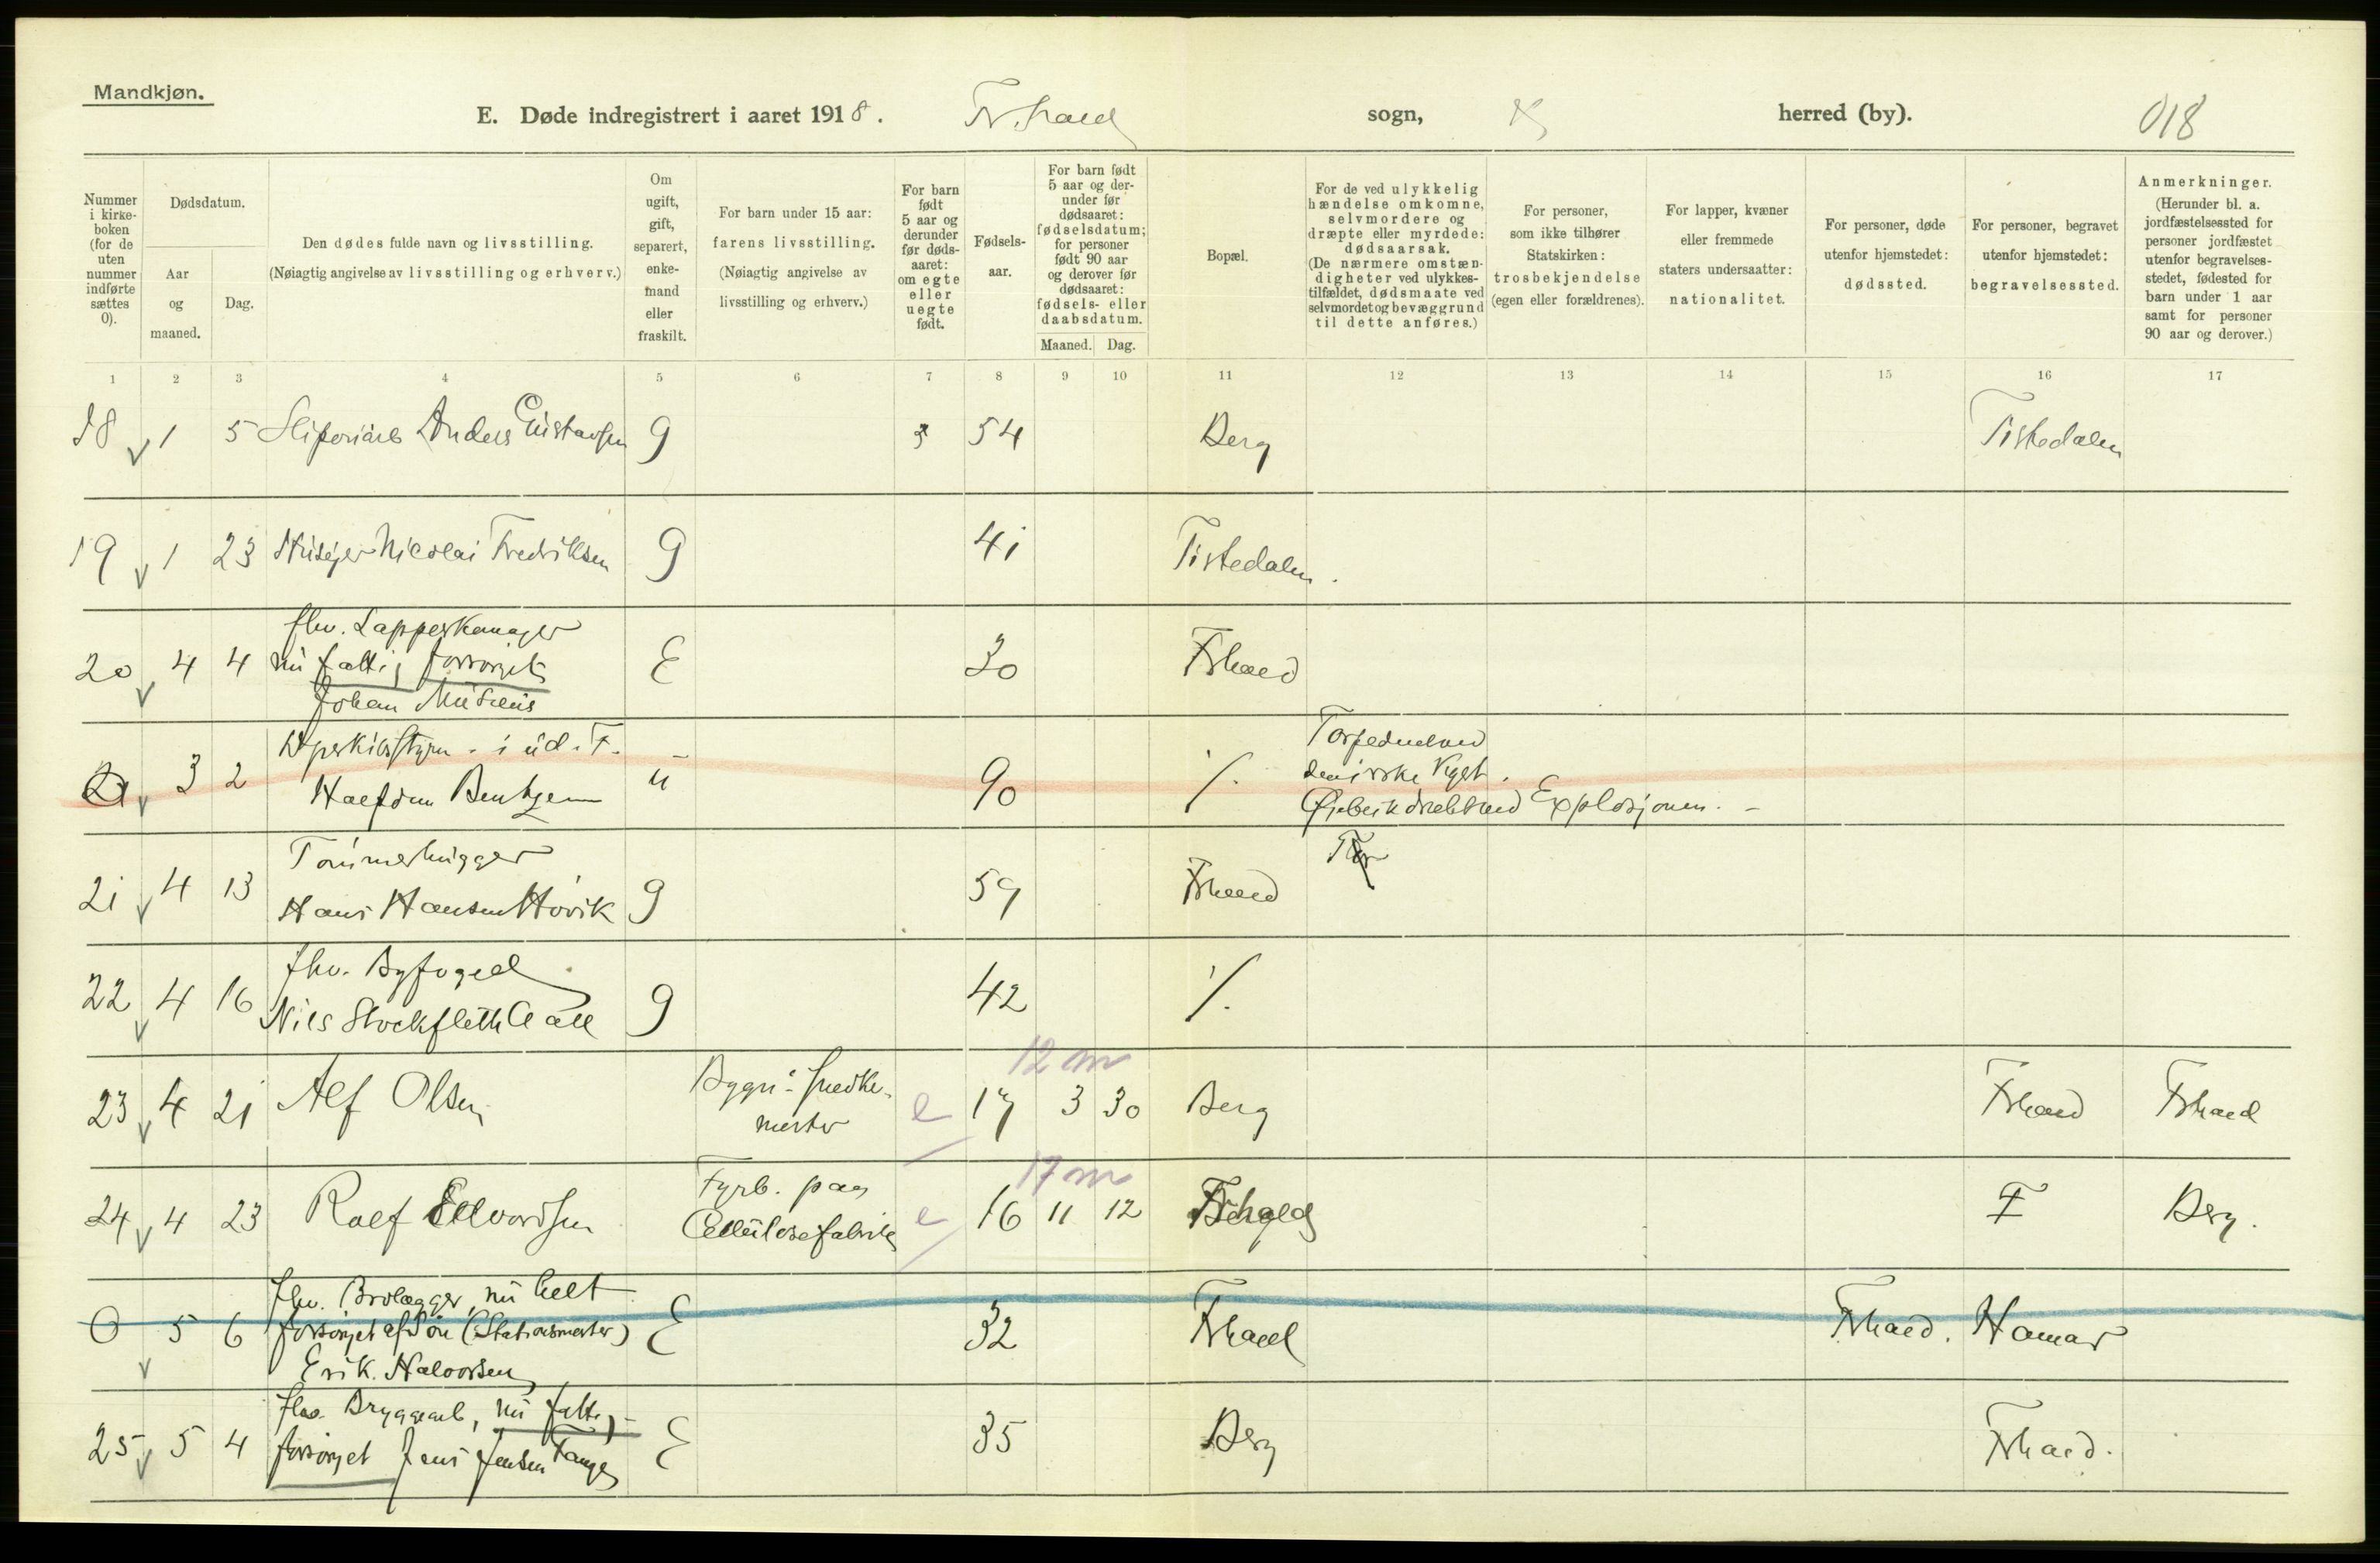 Mandkjøn.
E. Døde indregistrert i aaret 1918. Fr.hald sogn, herred (by). 018
Nummer i kirke-boken (for de uten nummer indførte sættes 0).
Dødsdatum.
Aar og maaned.
Dag.
Den dødes fulde navn og livsstilling.
(Nøiagtig angivelse av livsstilling og erhverv.)
Om ugift, gift, separert, enke-mand eller fraskilt.
For barn under 15 aar:
farens livsstilling.
(Nøiagtig angivelse av livsstilling og erhverv.)
For barn født 5 aar og derunder før døds-aaret: om egte eller uegte født.
Fødsels-aar.
For barn født 5 aar og der-under før dødsaaret: fødselsdatum; for personer født 90 aar og derover før dødsaaret: fødsels- eller daabsdatum.
Maaned. Dag.
Bopæl.
For de ved ulykkelig hændelse omkomne, selvmordere og dræpte eller myrdede: dødsaarsak.
(De nærmere omstæn-digheter ved ulykkes-tilfældet, dødsmaate ved selvmordet og bevæggrund til dette anføres.)
For personer, som ikke tilhører Statskirken: trosbekjendelse (egen eller forældrenes).
For lapper, kvæner eller fremmede staters undersaatter: nationalitet.
For personer, døde utenfor hjemstedet: dødssted.
For personer, begravet utenfor hjemstedet: begravelsessted.
Anmerkninger.
(Herunder bl. a. jordfæstelsessted for personer jordfæstet utenfor begravelses-stedet, fødested for barn under 1 aar samt for personer 90 aar og derover.)
1 2 3 4 5 6 7 8 9 10 11 12 13 14 15 16 17
18 1 5 Sliperiarb Anders Gustavsen g 54 Berg Tistedalen
19 1 23 Husejer Nicolai Fredriksen g 41 Tistedalen.
fhv.
20 4 4 nu fattigforsørget E 30 Frhald
Johan
i ud. F. Torpedered
3 2 u 90 ٪ den norske
Halfdan Bentzen Explosjonen. -
Tømmerhugger
21 4 13 Hans Hansen Høvik g 59 Frhald
fhv. Byfoged
22 4 16 Nils Stockfleth Aall g 42 ٪
12 m
23 4 21 Alf Olsen Bygn.-snedker- e 17 3 30 Berg Frhald Frhald
mester
17 m
24 4 23 Rolf Edvardsen Fyrb. paa e 16 11 12 F Berg.
Cellulosefabrik
fhv. Brolægger, nu helt
0 5 6 forsørget af Søn (Stationsmester) E 32 Frhald Frhald. Hamar
Erik Halvorsen
fhv. Bryggearb, nu fattig-
25 5 4 forsørget Jens Jensen Tange E 35 Berg Frhald.